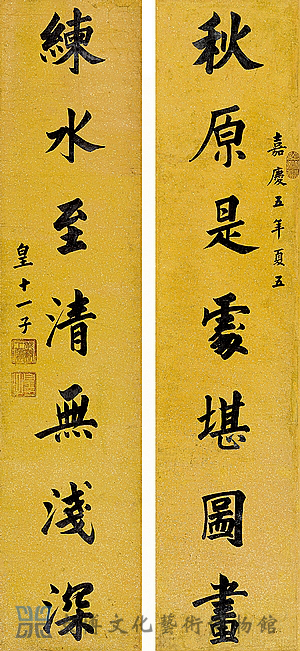 嘉慶五年夏五
秋原是處堪圖畫
練水至清無淺深
皇十一子
文化藝術博物館